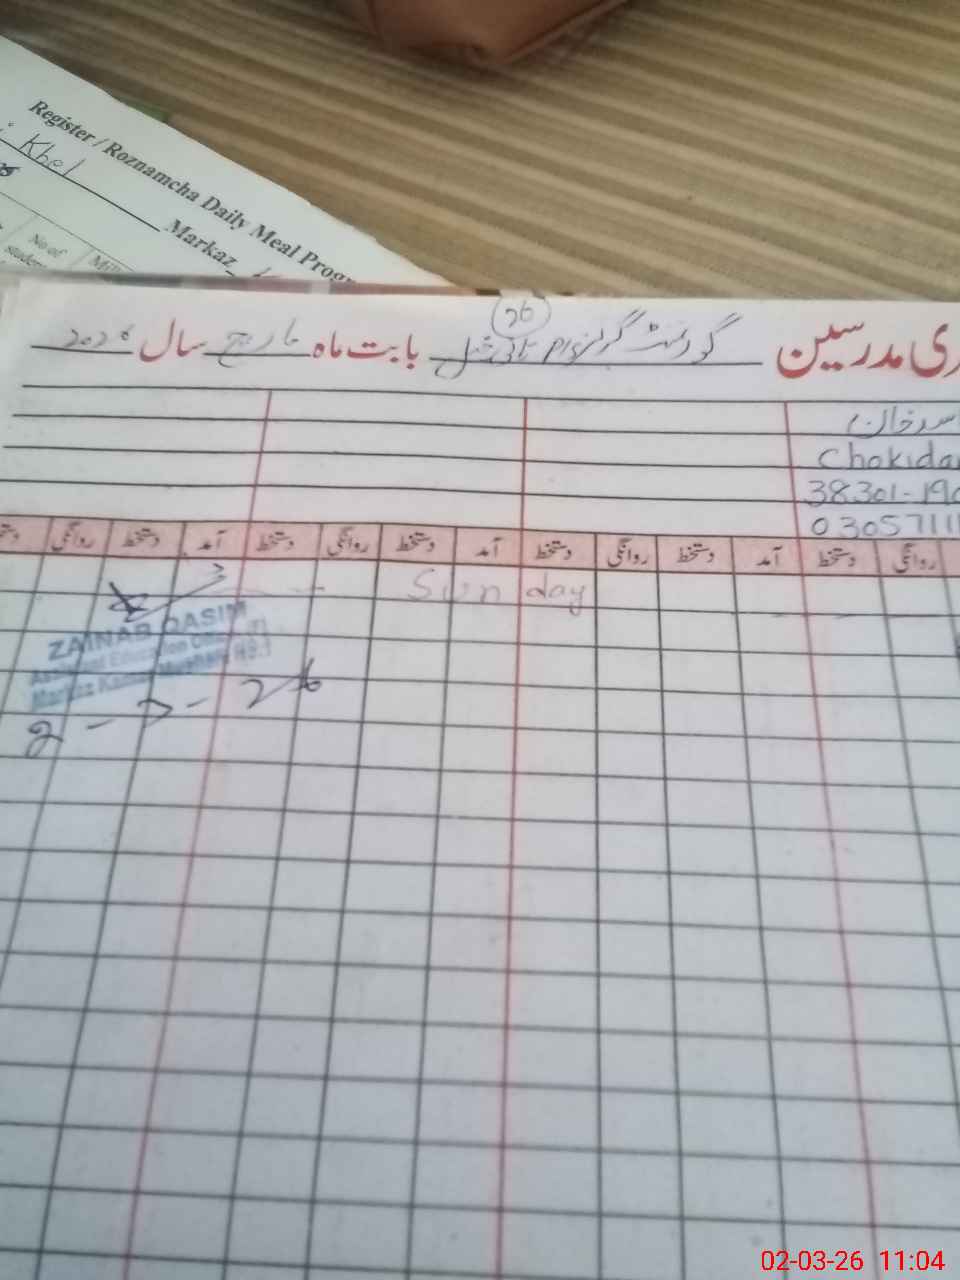 Register / Roznamcha Daily Meal Prog
Khel
Markaz
No of
studen
26
ری مدرسین گورنمنٹ گرلز P/S خیل بابت ماہ مارچ سال 2026
اسد خان
Chokida
38301-190
03057111
روانگی دستخط آمد دستخط روانگی دستخط آمد دستخط روانگی دستخط آمد دستخط روانگی
Sunday
ZAINAB QASIM
Assistant Education Officer (F)
Markaz
2-3-26
02-03-26 11:04